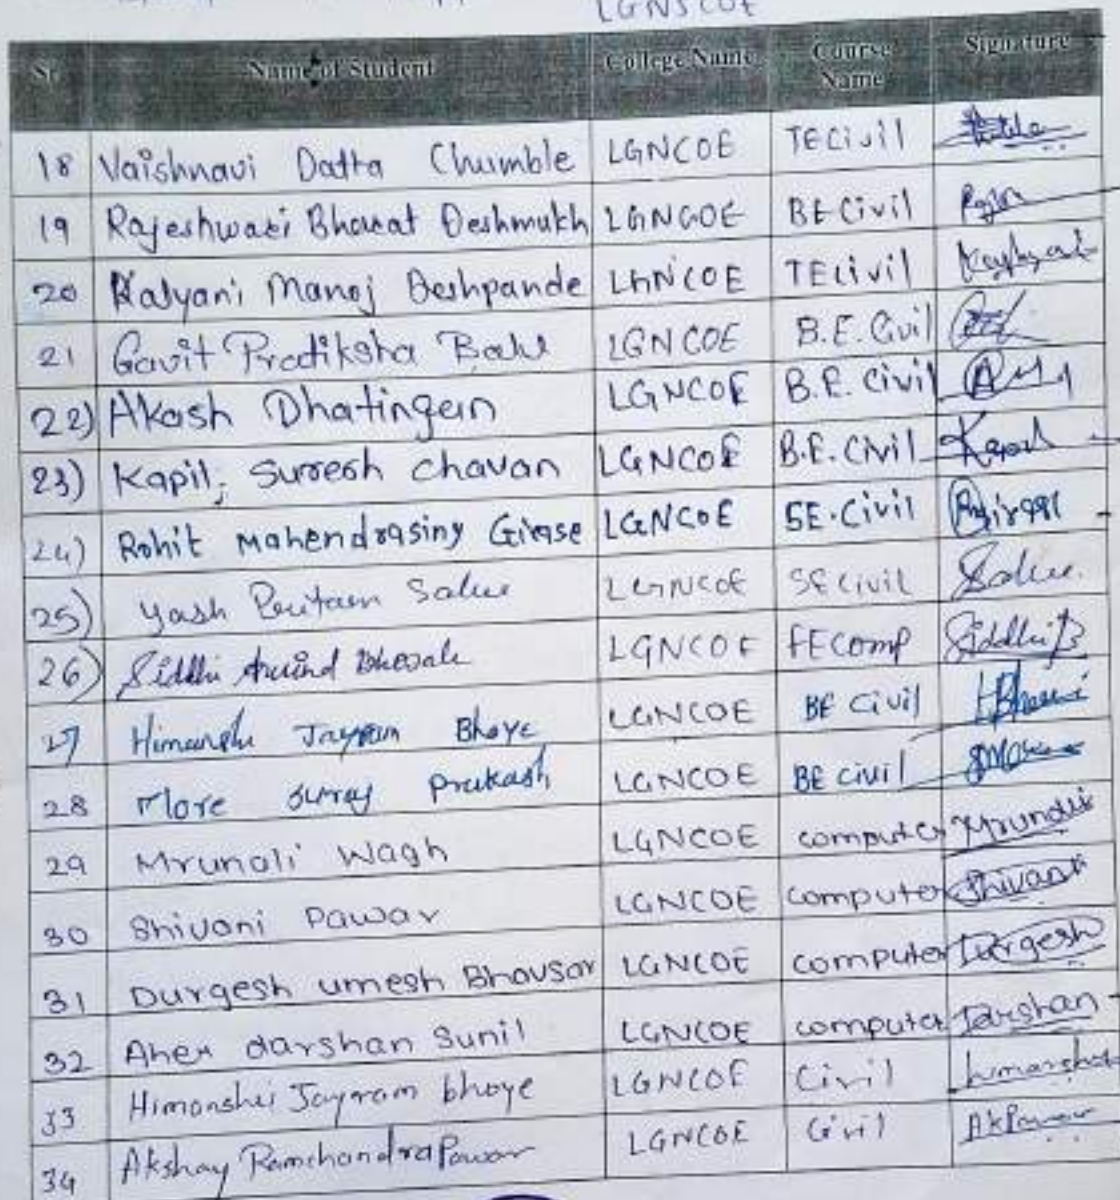 LGNSCOE
Sr. Name of Student College Name Course Name Signature
18 Vaishnavi Datta Chumble LGNCOE TECivil
19 Rajeshwari Bharat Deshmukh LGNCOE BE Civil
20 Kalyani Manoj Deshpande LGNCOE TECivil
21 Gavit Pradiksha Balu LGNCOE B.E. Civil
22) Akash Dhatingan LGNCOE B.E. Civil
23) Kapil; Suresh Chavan LGNCOE B.E. Civil Kapil
24) Rohit Mahendrasing Girase LGNCOE SE.Civil
25) Yash Salve LGNCOE SE Civil Salve.
26) Siddhi Arvind LGNCOE FEComp Siddhi B
27 Himanshu Jayram Bhoye LGNCOE BE Civil
28 More Suraj Prakash LGNCOE BE civil
29 Mrunali Wagh LGNCOE computer Mrunali
30 Shivani Pawar LGNCOE computer Shivani
31 Durgesh umesh Bhavsar LGNCOE computer Durgesh
32 Aher darshan Sunil LGNCOE computer Darshan
33 Himanshu Jayram bhoye LGNCOE Civil
34 Akshay Ramchandra Pawar LGNCOE Civil AkPawar